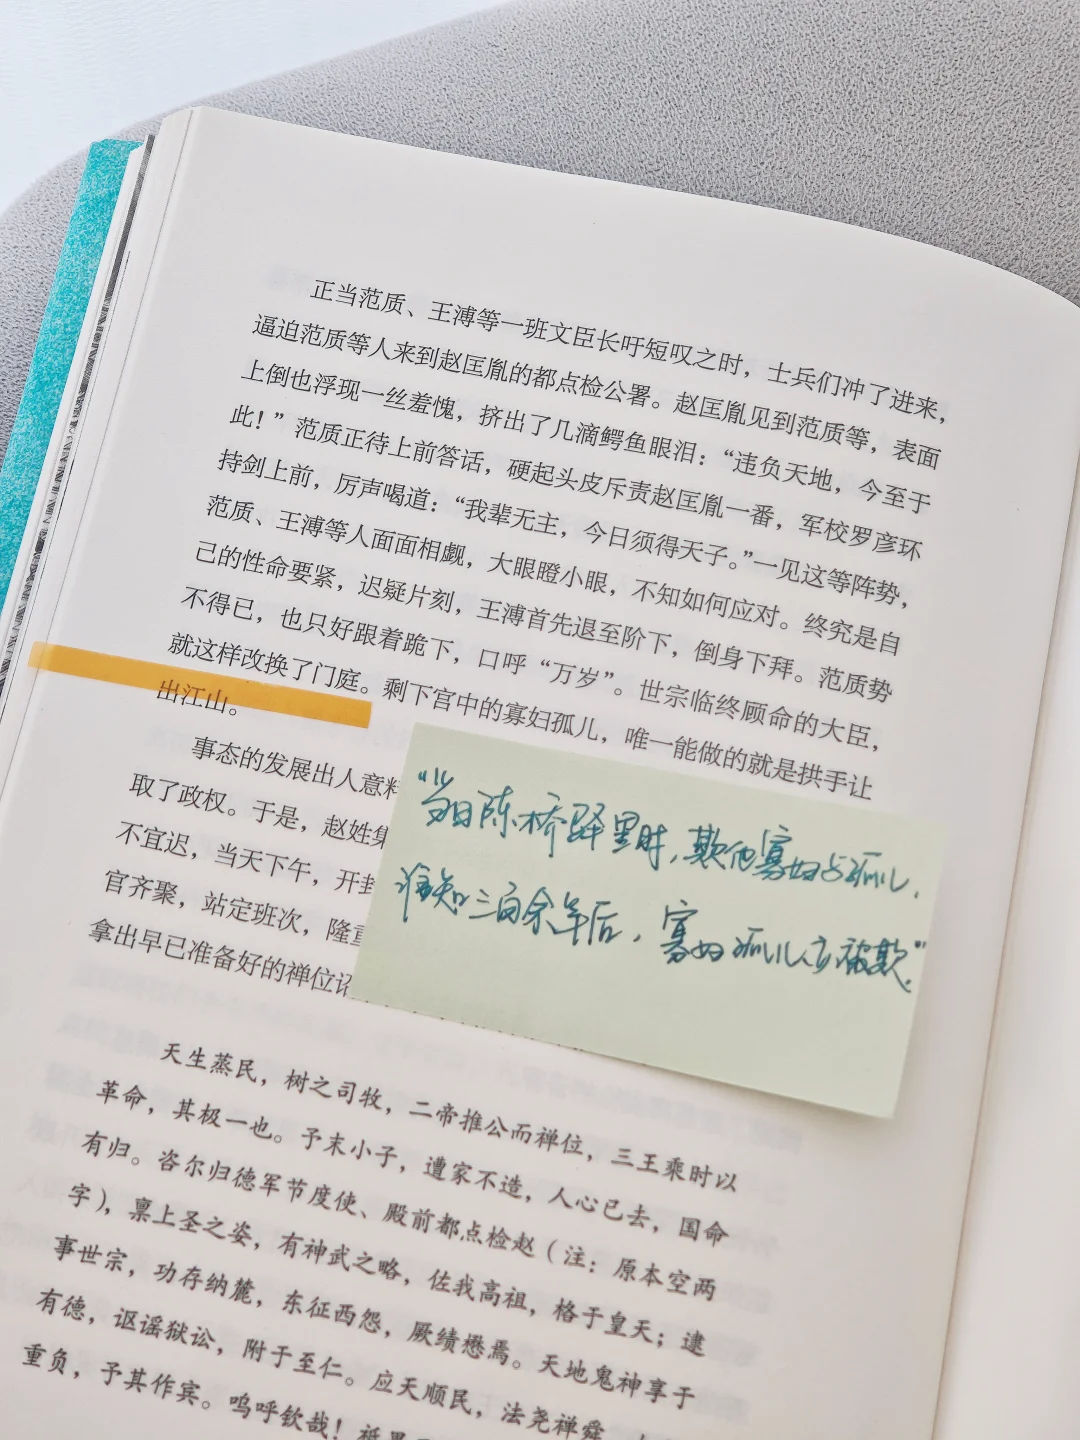 正当范质、王溥等一班文臣长吁短叹之时，士兵们冲了进来，
逼迫范质等人来到赵匡胤的都点检公署。赵匡胤见到范质等，表面
上倒也浮现一丝羞愧，挤出了几滴鳄鱼眼泪：“违负天地，今至于
此！”范质正待上前答话，硬起头皮斥责赵匡胤一番，军校罗彦环
持剑上前，厉声喝道：“我辈无主，今日须得天子。”一见这等阵势，
范质、王溥等人面面相觑，大眼瞪小眼，不知如何应对。终究是自
己的性命要紧，迟疑片刻，王溥首先退至阶下，倒身下拜。范质势
不得已，也只好跟着跪下，口呼“万岁”。世宗临终顾命的大臣，
就这样改换了门庭。剩下宫中的寡妇孤儿，唯一能做的就是拱手让
出江山。
事态的发展出人意料
取了政权。于是，赵姓集
不宜迟，当天下午，开封
官齐聚，站定班次，隆重
拿出早已准备好的禅位诏
“当日陈桥驿里时，欺他寡妇与孤儿，
谁知三百余年后，寡妇孤儿亦被欺。”
天生蒸民，树之司牧，二帝推公而禅位，三王乘时以
革命，其极一也。予末小子，遭家不造，人心已去，国命
有归。咨尔归德军节度使、殿前都点检赵（注：原本空两
字），禀上圣之姿，有神武之略，佐我高祖，格于皇天；逮
事世宗，功存纳麓，东征西怨，厥绩懋焉。天地鬼神享于
有德，讴谣狱讼，附于至仁。应天顺民，法尧禅舜，
重负，予其作宾。呜呼钦哉！祗